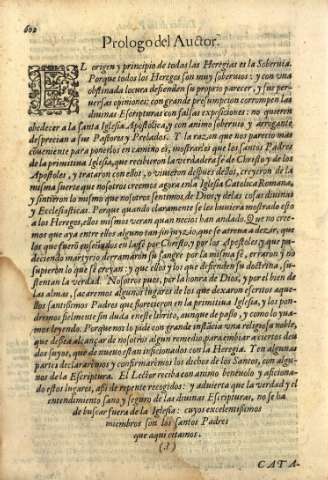 602
Prologo del Auctor.
EL origen y principio de todas las Heregias es la Soberuia.
Porque todos los Hereges son muy soberuios: y con vna
obstinada locura defienden su proprio parecer, y sus per-
uersas opiniones: con grande presumpcion corrompen las
diuinas Escripturas con falsas exposiciones: no quieren
obedecer a la santa Iglesia Apostolica, y con animo soberuio y arrogante
desprecian a sus Pastores y Prelados. Y la razon que nos parecio mas
conueniente para ponerlos en camino es, mostrarles que los santos Padres
de la primitiua Iglesia, que recibieron la verdadera fé de Christo y de los
Apostoles, y trataron con ellos, o viuieron despues dellos, creyeron de la
misma suerte que nosotros creemos agora en la Iglesia Catolica Romana,
y sintieron lo mismo que nosotros sentimos de Dios, y de las cosas diuinas
y Ecclesiasticas. Porque quando claramente se les huuiera mostrado esto
a los Hereges, ellos mismos veran quan necios han andado. Que no cree-
mos que aya entre ellos alguno tan sin juyzio, que se atreua a dezir, que
los que fueron enseñados en la fe por Christo, y por los Apostoles, y que pa-
deciendo martyrio derramaron su sangre por la misma fé, erraron y no
supieron lo que se creyan: y que ellos y los que defienden su dotrina, su-
stentan la verdad. Nosotros pues, por la honra de Dios, y por el bien de
las almas, sacaremos algunos lugares de los que dexaron escritos aque-
llos santissimos Padres que florecieron en la primitiua Iglesia, y los pon-
dremos fielmente sin duda en este librito, aunque de passo, y como lo yua-
mos leyendo. Porque nos lo pide con grande instancia vna religiosa noble,
que dessea alcançar de nosotros algun remedio para embiar a ciertos deu-
dos suyos, que de nueuo estan inficionados con la Heregia. Y en algunas
partes declararemos y confirmaremos los dichos de los Santos, con algu-
nos de la Escriptura. El Lector reciba con animo beneuolo y aficiona-
do estos lugares, assi de repente recogidos: y aduierta que la verdad y el
entendimiento sano y seguro de las diuinas Escripturas, no se ha
de buscar fuera de la Iglesia: cuyos excelentissimos
miembros son los santos Padres
que aqui citamos.
(.?.)
CATA-